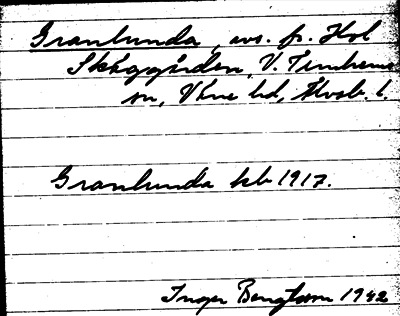 Granlunda, avs. fr. Hol
Skåggården, V. Tunhems
sn, Väne hd, Älvsb. l.
Granlunda kb 1917.
Inger Bengtsson 1942